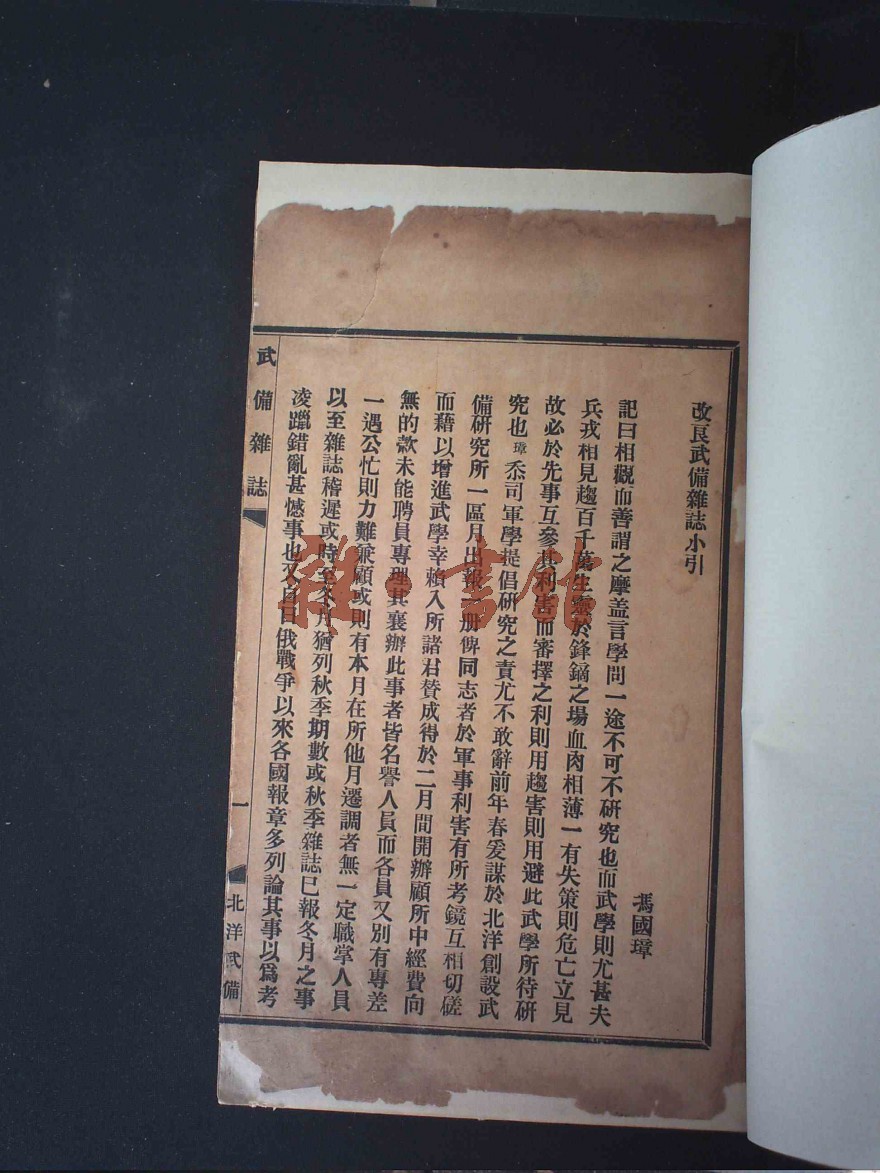 改良武備雜誌小引
馮國璋
記曰相觀而善謂之摩盖言學問一途不可不研究也而武學則尤甚夫
兵戎相見趨百千萬生靈於鋒鏑之場血肉相薄一有失策則危亡立見
故必於先事互參其利害而審擇之利則用趨害則用避此武學所待研
究也璋忝司軍學提倡研究之責尤不敢辭前年春爰謀於北洋創設武
備研究所一區月出報一册俾同志者於軍事利害有所考鏡互相切磋
而藉以增進武學幸賴入所諸君贊成得於二月間開辦顧所中經費向
無的款未能聘員專理其襄辦此事者皆名譽人員而各員又別有專差
一遇公忙則力難兼顧或則有本月在所他月遷調者無一定職掌人員
以至雜誌稽遲或時至冬月猶列秋季期數或秋季雜誌已報冬月之事
凌躐錯亂甚憾事也又自日俄戰爭以來各國報章多列論其事以爲考
武備雜誌
一
北洋武備
雜·書館